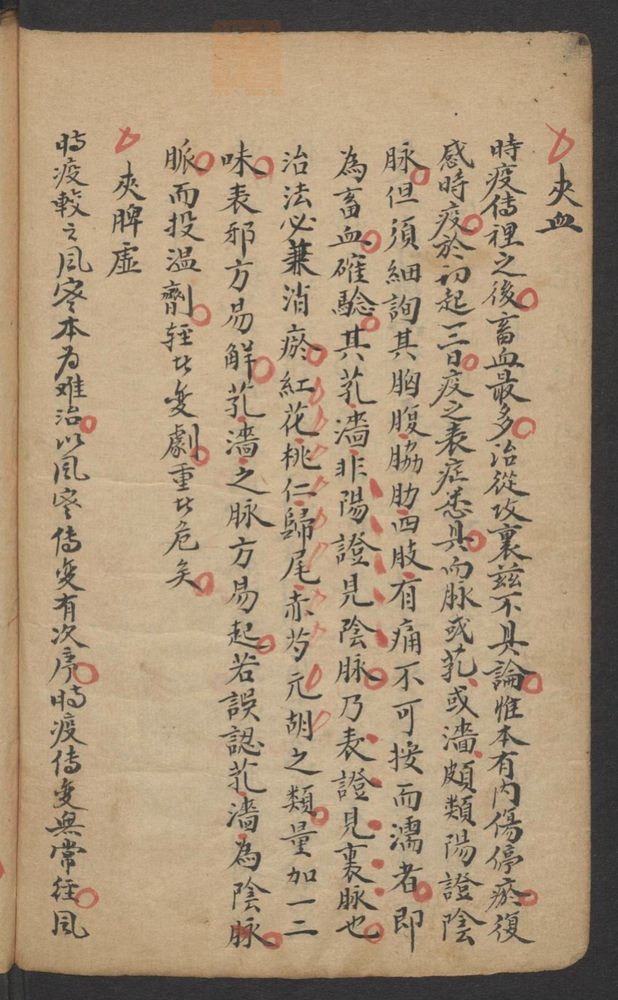 夾血
時疫傳裡之後畜血最多治從攻裏茲不具論惟本有內傷停瘀復
感時疫於初起一二日疫之表症悉具而脉或芤或濇頗類陽證陰
脉但須細詢其胸腹脇肋四肢有痛不可按而濡者即
為畜血確驗其芤濇非陽證見陰脉乃表證見裏脉也
治法必兼消瘀紅花桃仁歸尾赤芍元胡之類量加一二
味表邪方易解芤濇之脉方易起若誤認芤濇為陰脉
脈而投温劑輕者變劇重者危矣
夾脾虛
時疫較之風寒本为难治以風寒傳變有次序時疫傳変無常經風